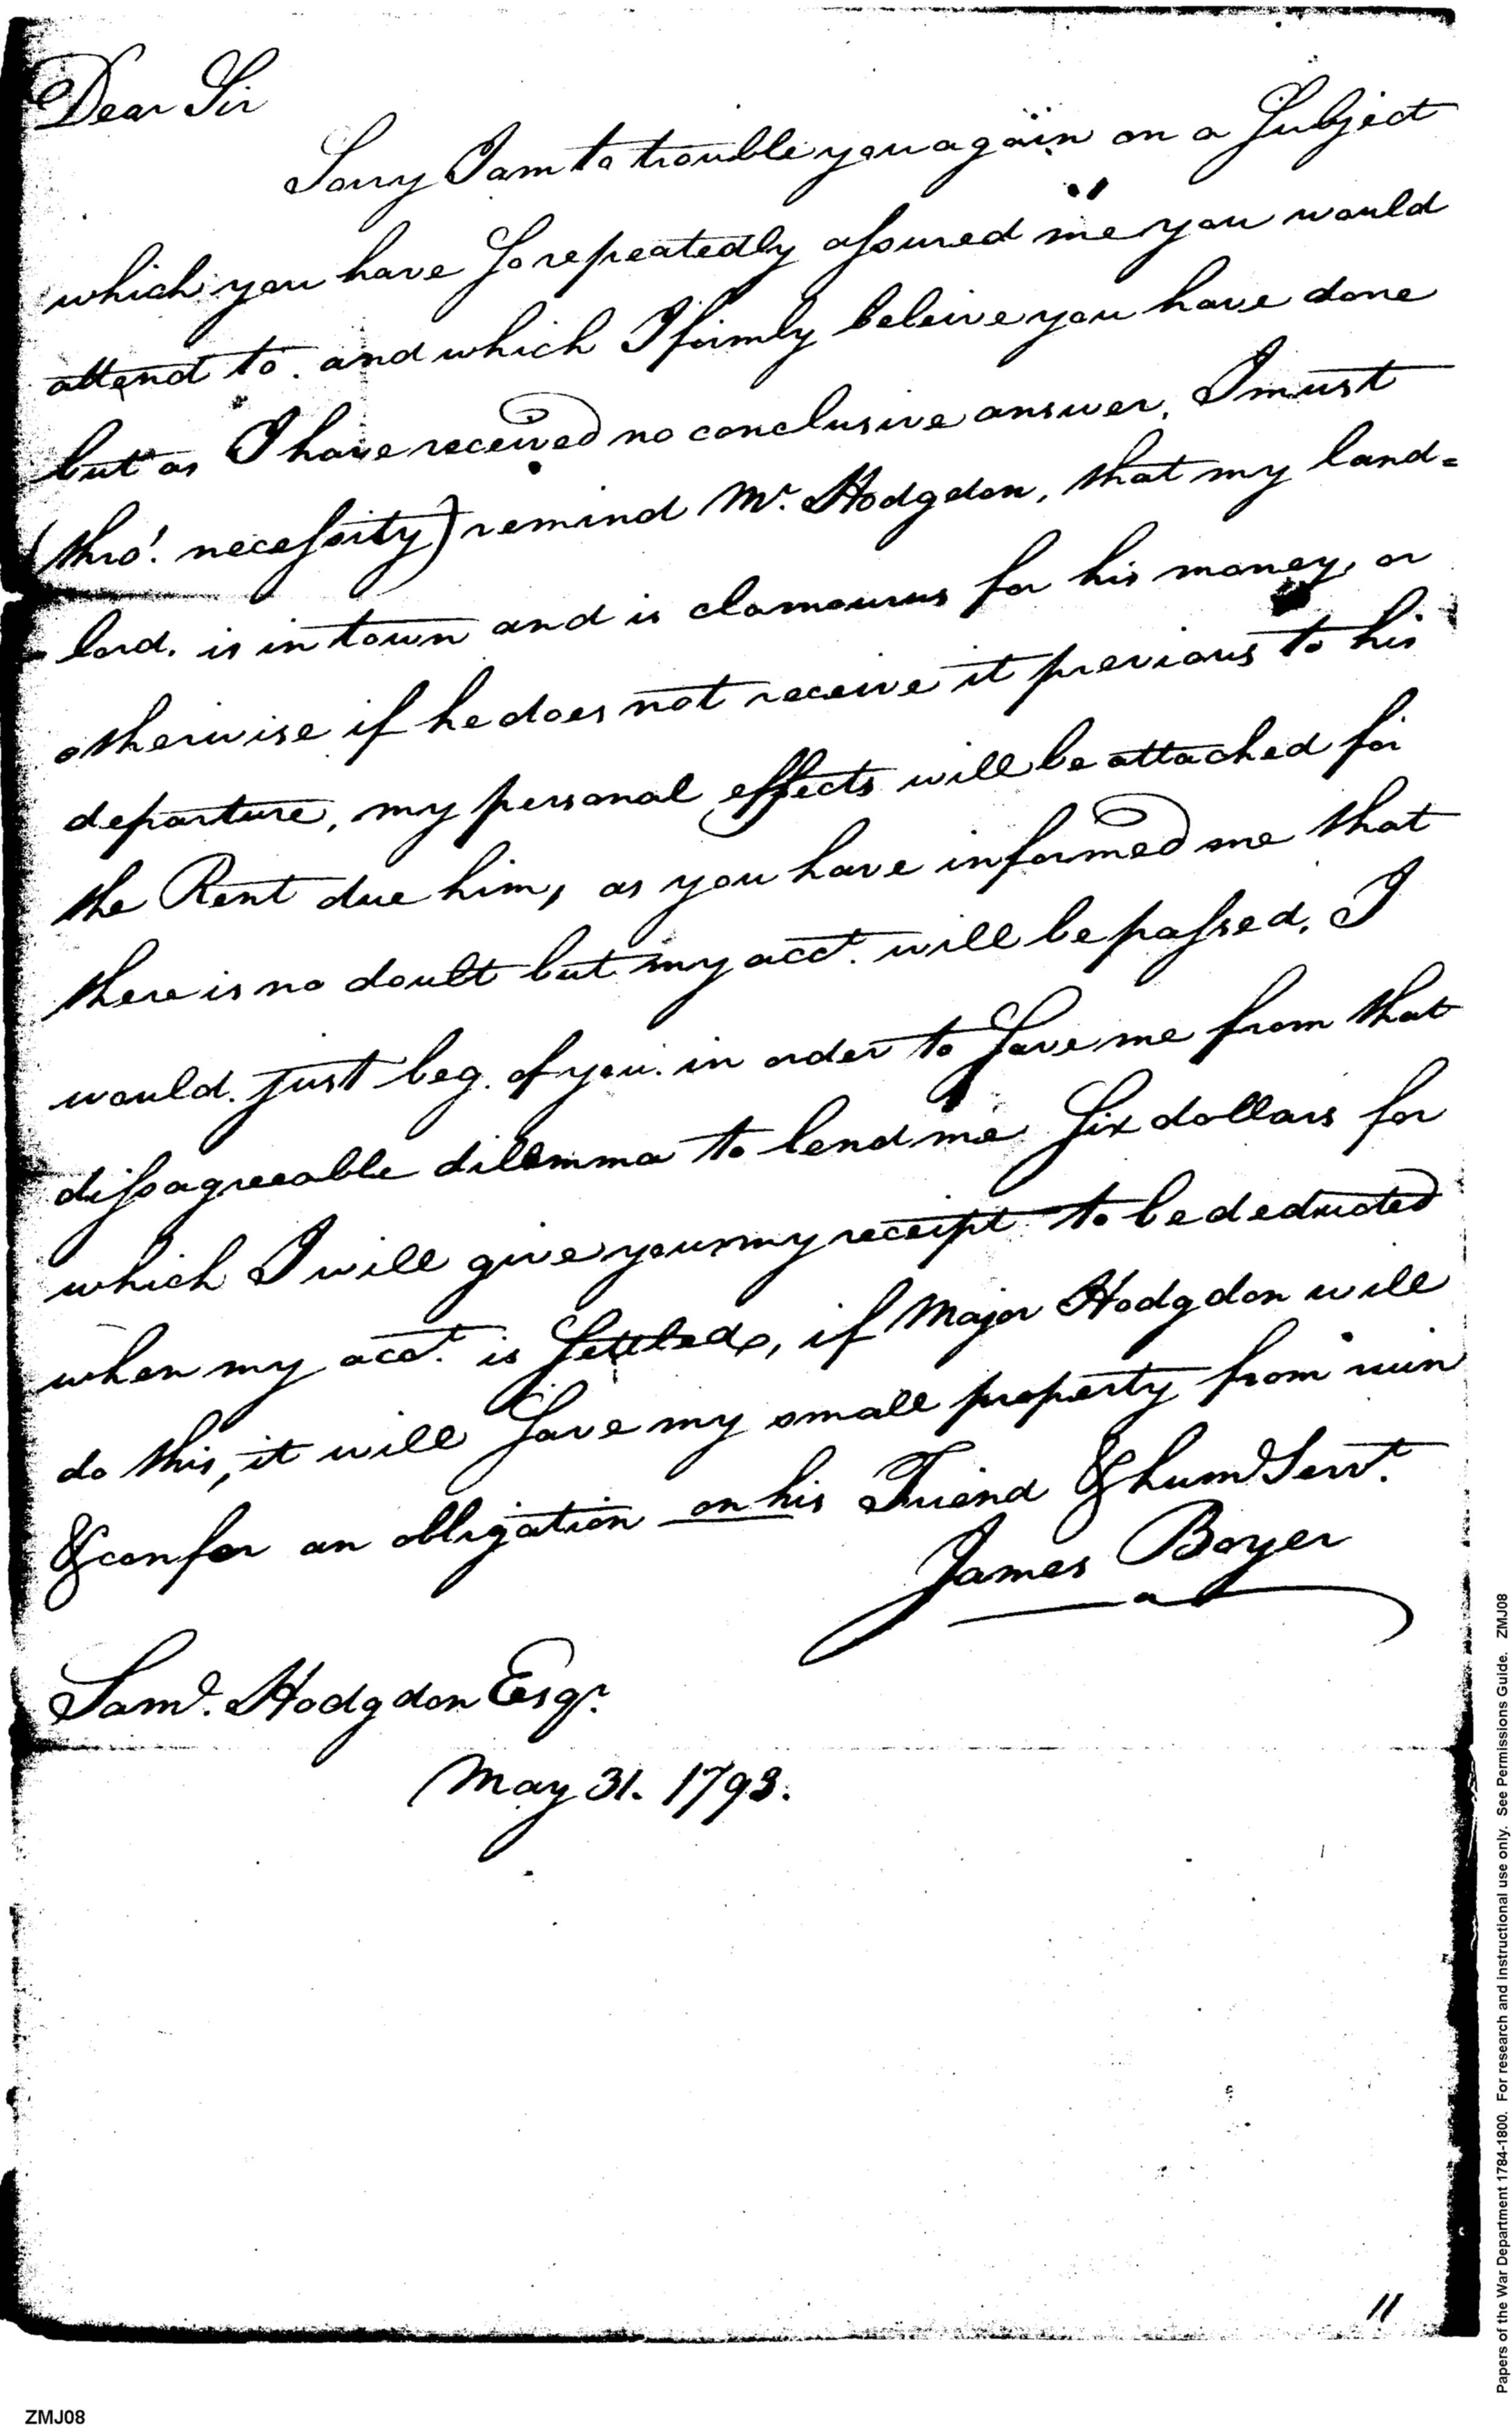 Dear Sir
Sorry I am to trouble you again on a Subject
which you have So repeatedly assured me you would
attend to. and which I firmly beleive you have done
but as I have received no conclusive answer, I must
(thro'. necessity) remind Mr. Hodgdon, that my land=
lord. is in town and is clamourus for his money, or
otherwise if he does not receive it previous to his
departure, my personal effects will be attached for
the Rent due him, as you have informed me that
there is no doubt but my acct. will be passed, I
would. just beg. of you. in order to Save me from that
dissagreeable dilemma to lend me Six dollars for
which I will give you my receipt to be deducted
when my acct. is Settled, if Major Hodgdon will
do this, it will Save my small property from ruin
& confer an obligation on his Friend & humd Servt.
James Boyer
Saml. Hodgdon Esqr.
May 31. 1793.
11
ZMJ08
Papers of the War Department 1784-1800. For research and instructional use only. See Permissions Guide. ZMJ08